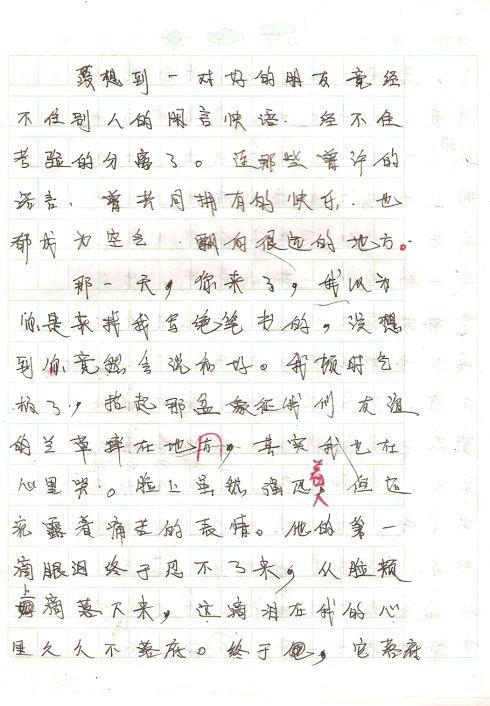 没想到一对好的朋友竟经
不住别人的闲言快语.经不住
考验的分离了。连那些曾许的
诺言.曾共同拥有的快乐.也
都成为空气 飘向很远的地方。
那一天,你来了,我以为
你是来找我写绝笔书的,没想
到你竟然会说和好。我顿时气
极了,抬起那盆象征我们友谊
的兰草摔在地,其实我也在
心里哭。脸上虽然强忍着笑但还
充露着痛苦的表情。他的第一
滴眼泪终于忍不了来,从脸颊
上滴落下来,这滴泪在我的心
里久久不落底。终于,它落底